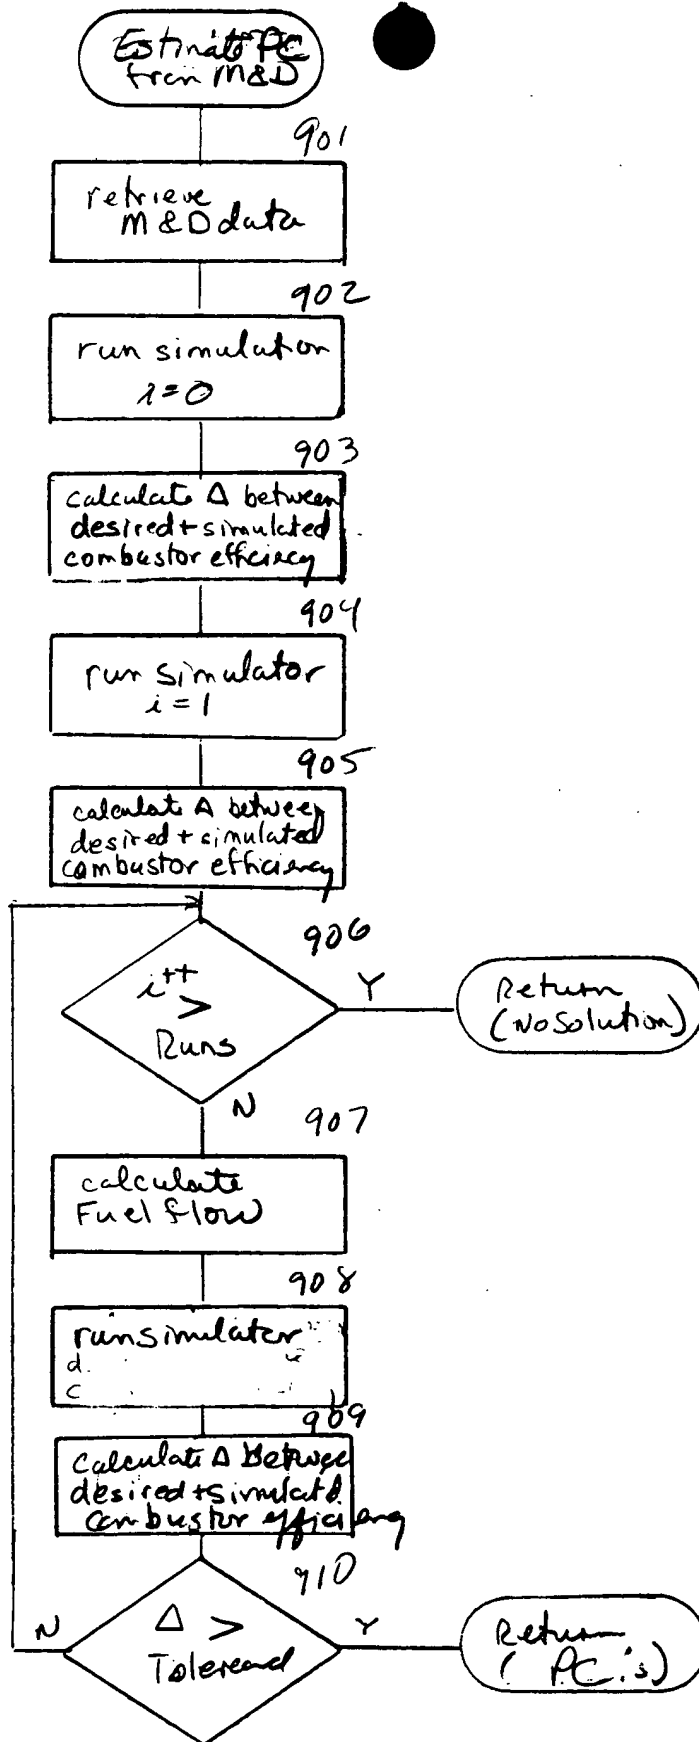 Estimate PC
from M&D
901
retrieve
M&D data
902
run simulation
i=0
903
calculate Δ between
desired + simulated
combustor efficiency
904
run simulator
i = 1
905
calculate Δ between
desired + simulated
combustor efficiency
906
i++
>
Runs
Y
Return
(No Solution)
N
907
calculate
Fuel flow
908
run simulator
d
c
909
Calculate Δ Between
desired + simulated
combustor efficiency
910
Δ >
N
Y
Return
( PC's)